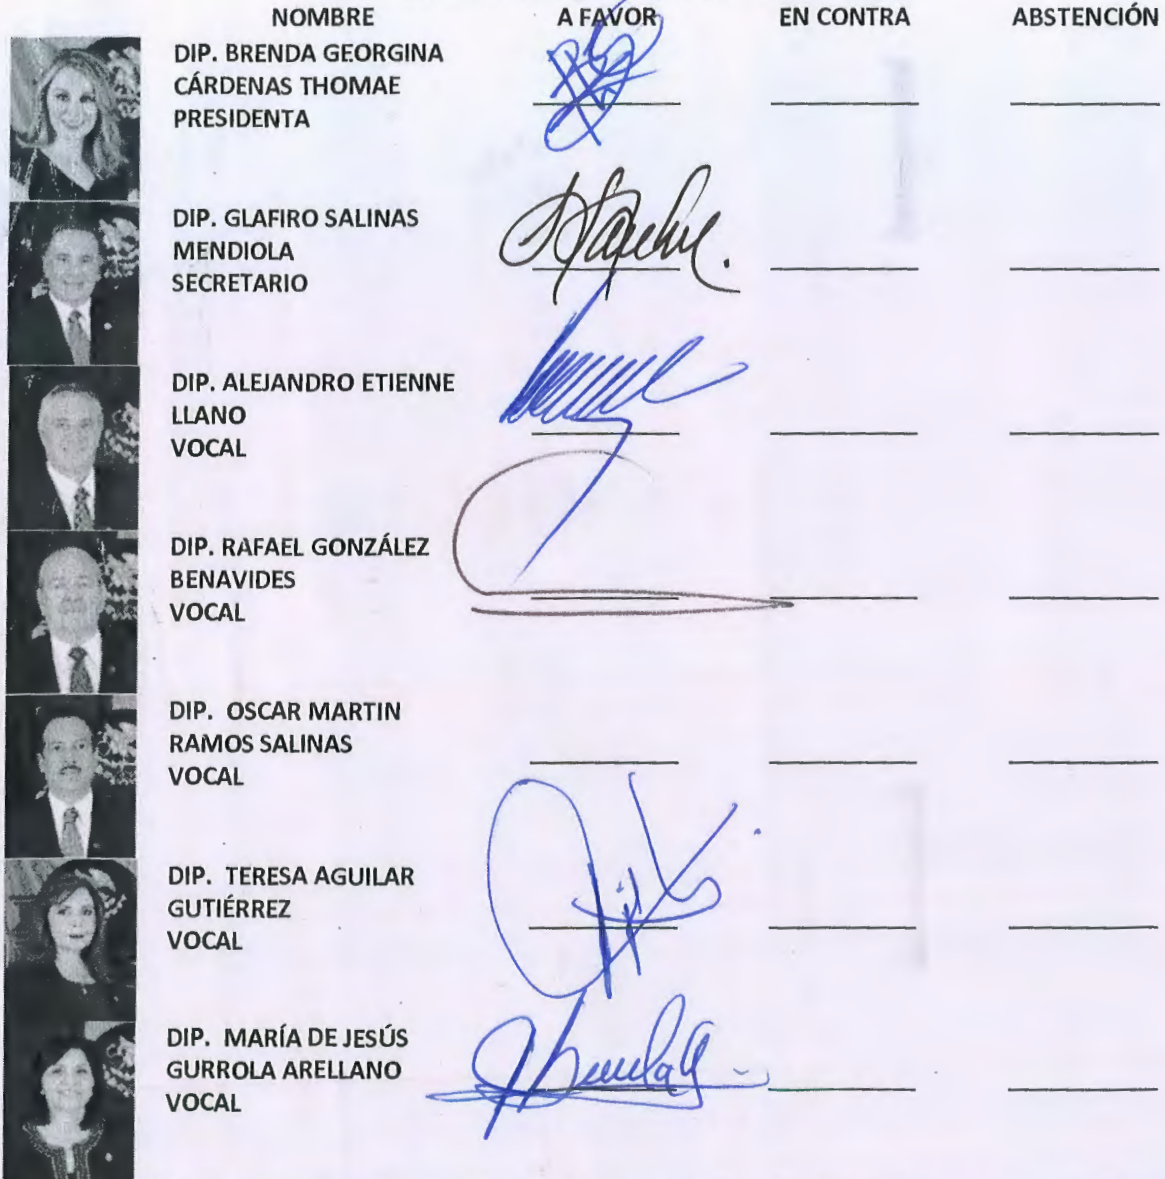 NOMBRE A FAVOR EN CONTRA ABSTENCIÓN
DIP. BRENDA GEORGINA
CÁRDENAS THOMAE
PRESIDENTA
DIP. GLAFIRO SALINAS
MENDIOLA
SECRETARIO
DIP. ALEJANDRO ETIENNE
LLANO
VOCAL
DIP. RAFAEL GONZÁLEZ
BENAVIDES
VOCAL
DIP. OSCAR MARTIN
RAMOS SALINAS
VOCAL
DIP. TERESA AGUILAR
GUTIÉRREZ
VOCAL
DIP. MARÍA DE JESÚS
GURROLA ARELLANO
VOCAL